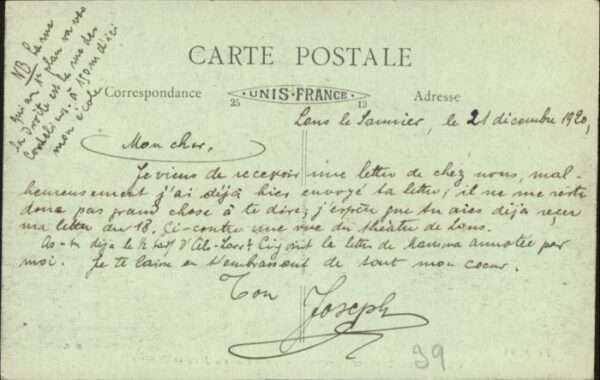 NB La rue
qui au 1er plan va vers
la droite est la rue des
Cordeliers. à 150 m d'ici
mon école
CARTE POSTALE
Correspondance
UNIS-FRANCE
25
13
Adresse
Lons le Saunier, le 21 décembre 1920,
Mon cher,
Je viens de recevoir une lettre de chez nous, mal-
heureusement j'ai déjà hier envoyé ta lettre; il ne me reste
donc pas grand chose à te dire; j'espère que tu aies déjà reçu
ma lettre du 18. Ci-contre une vue du théâtre de Lons.
As-tu déjà le la lettre de annotée par
moi. Je te laisse en t'embrassant de tout mon coeur.
Ton
Joseph
39